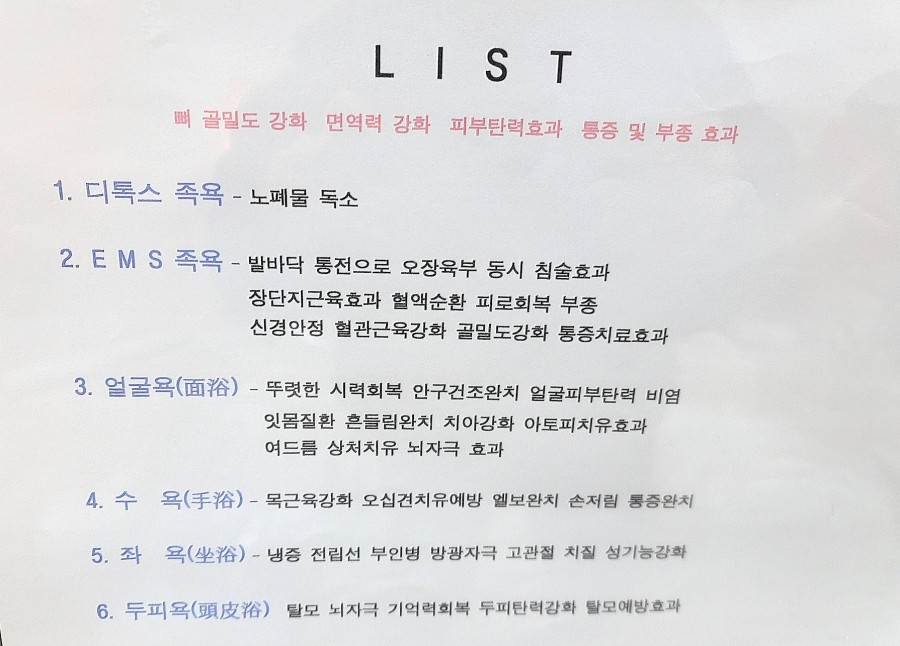 L I S T
뼈 골밀도 강화 면역력 강화 피부탄력효과 통증 및 부종 효과
1. 디톡스 족욕 - 노폐물 독소
2. E M S 족욕 - 발바닥 통전으로 오장육부 동시 침술효과
장단지근육효과 혈액순환 피로회복 부종
신경안정 혈관근육강화 골밀도강화 통증치료효과
3. 얼굴욕(面浴) - 뚜렷한 시력회복 안구건조완치 얼굴피부탄력 비염
잇몸질환 흔들림완치 치아강화 아토피치유효과
여드름 상처치유 뇌자극 효과
4. 수 욕(手浴) - 목근육강화 오십견치유예방 엘보완치 손저림 통증완치
5. 좌 욕(坐浴) - 냉증 전립선 부인병 방광자극 고관절 치질 성기능강화
6. 두피욕(頭皮浴) 탈모 뇌자극 기억력회복 두피탄력강화 탈모예방효과